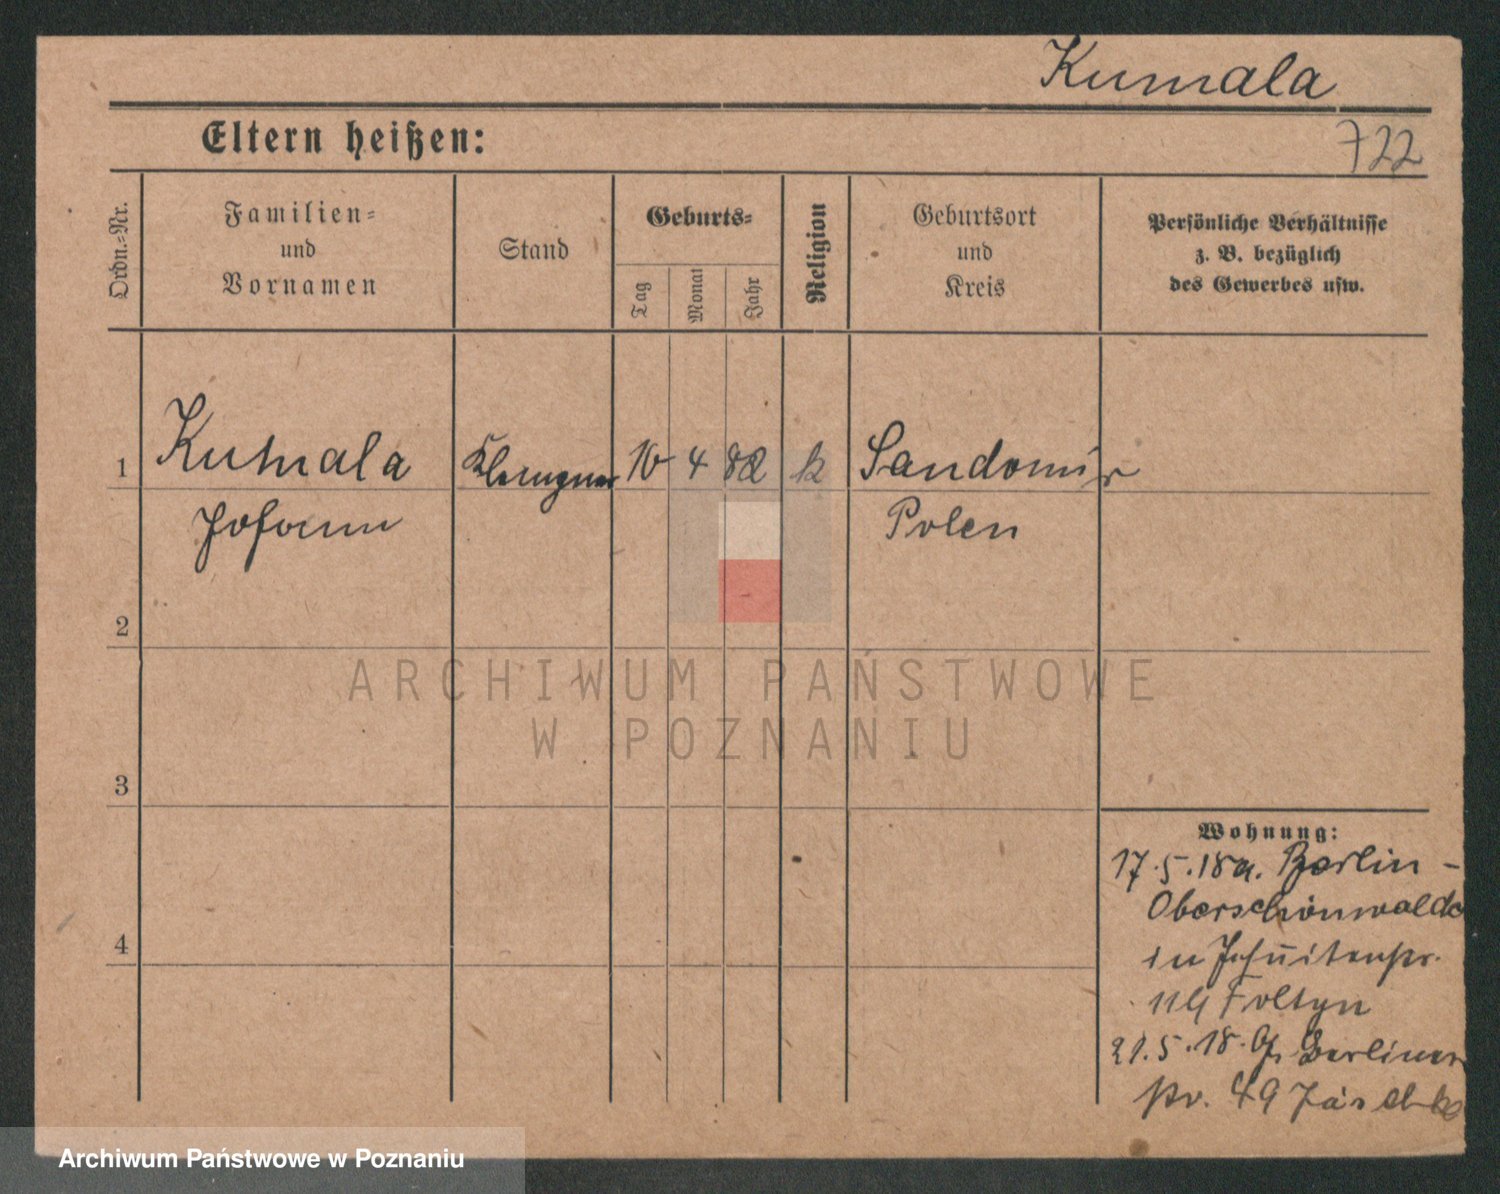 Kumala
722
Eltern heißen:
Ordn.=Nr.
Familien=
und
Vornamen
Stand
Geburts=
Tag
Monat
Jahr
Religion
Geburtsort
und
Kreis
Persönliche Verhältnisse
z. B. bezüglich
des Gewerbes usw.
1
Kumala
Klempner
10
4
82
k
Sandomir
Johann
Polen
2
3
4
Wohnung:
17.5.18 a. Berlin -
Oberschönwalde
in Jesuitenstr.
Foltyn
21.5.18. Berliner
str. 49 Jäschke
ARCHIWUM PAŃSTWOWE
W POZNANIU
Archiwum Państwowe w Poznaniu